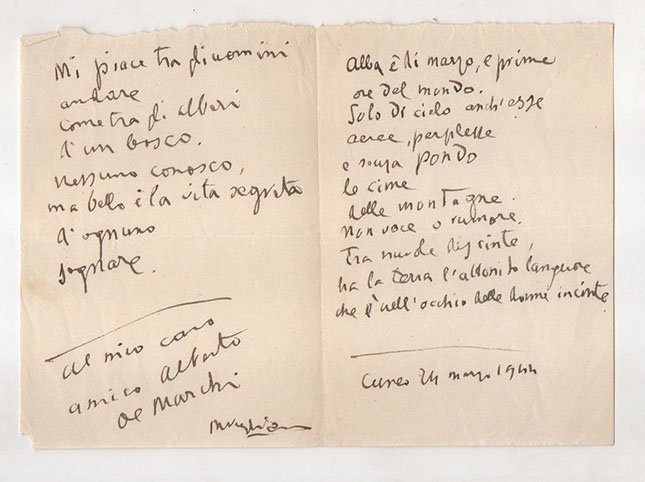 Mi piace tra gli uomini
andare
come tra gli alberi
d'un bosco.
Nessuno conosco,
ma bello è la vita segreta
d'ognuno
sognare.
al mio caro
amico Alberto
De Marchi
Alba è di marzo, e prime
ore del mondo.
Solo di cielo anch'esse
aeree, perplesse
e senza pondo
le cime
delle montagne.
Non voce o rumore.
Tra nuvole discinte,
ha la terra l'attonito languore
che è nell'occhio delle donne incinte.
Cuneo 24 marzo 1944